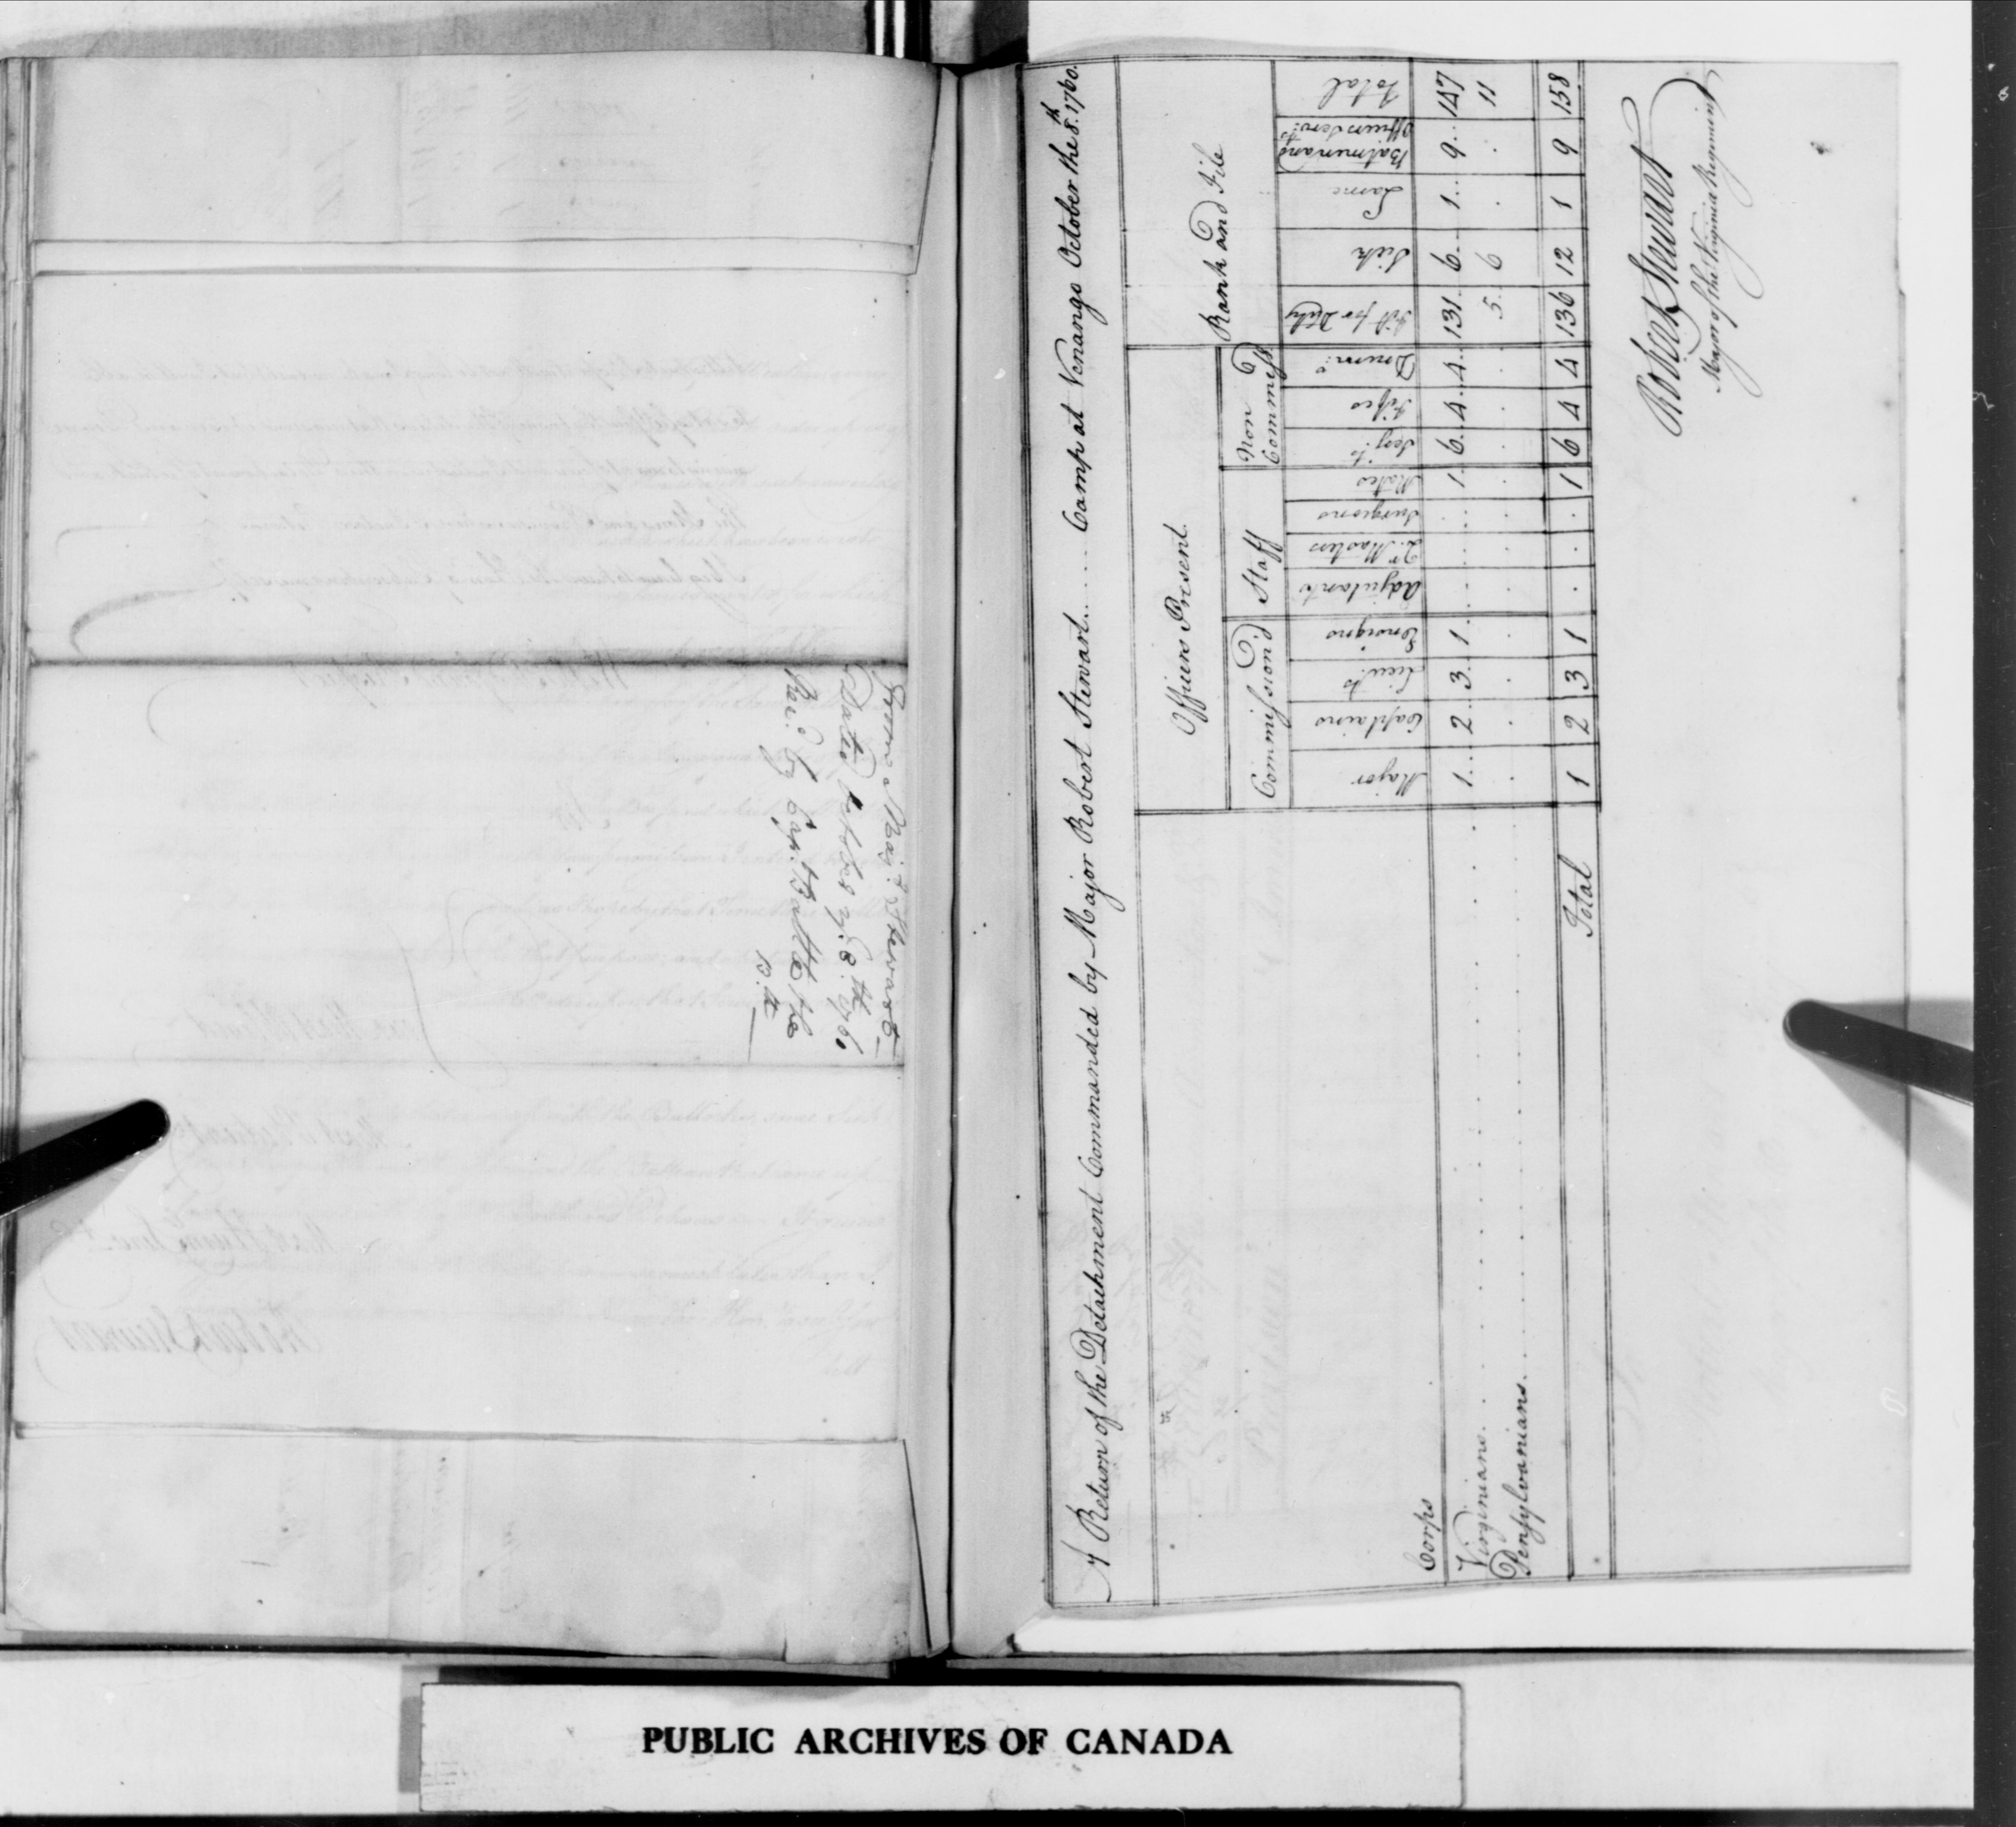 From Maj.r Stewart
Dated October y.e 8.th 1760
Rec.d by Cap.t Balt the
13.th
A Return of the Detachment Commanded by Major Robert Stewart. . . . . Camp at Venango October the 8.th 1760.
Officers Present Rank and File
Commission'd Staff Non Commiss'd
Corps Major Captains Lieu.ts Ensigns Adjutants Q.r Masters Surgeons Mates Serj.ts Fifes Drum.s Fitt for Duty Sick Lame Batmen and Officers Serv.ts Total
Virginians. 1 2 3 1 . . . 1 6 4 4 131 6 1 9 147
Pensylvanians. . . . . . . . . . . . 5 6 . . 11
Total 1 2 3 1 . . . 1 6 4 4 136 12 1 9 158
Robert Stewart
Major of the Virginia Regiment
PUBLIC ARCHIVES OF CANADA